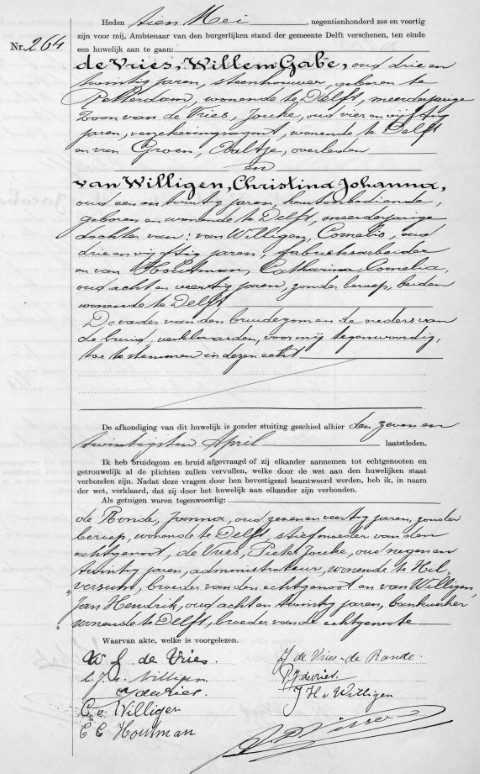 Nr. 264
Heden tien Mei, negentienhonderd zes en veertig
zijn voor mij, Ambtenaar van den burgerlijken stand der gemeente Delft verschenen, ten einde
een huwelijk aan te gaan:
de Vries, Willem Gabe, oud drie en
twintig jaren, steenhouwer, geboren te
Rotterdam, wonende te Delft, meerderjarige
zoon van de Vries, Jouke, oud vier en vijftig
jaren, verzekeringsagent, wonende te Delft
en van Groen, Baltje, overleden
en
van Willigen, Christina Johanna,
oud een en twintig jaren, kantoorbediende,
geboren en wonende te Delft, meerderjarige
dochter van: van Willigen, Cornelis, oud
drie en vijftig jaren, fabrieksarbeider
en van Catharina Cornelia,
oud acht en veertig jaren, zonder beroep, beiden
wonende te Delft
De vader van den bruidegom en de ouders van
de bruid, verklaarden, voor mij tegenwoordig,
toe te stemmen in dezen echt
De afkondiging van dit huwelijk is zonder stuiting geschied alhier den zeven en
twintigsten April laatstleden.
Ik heb bruidegom en bruid afgevraagd of zij elkander aannemen tot echtgenooten en
getrouwelijk al de plichten zullen vervullen, welke door de wet aan den huwelijken staat
verbonden zijn. Nadat deze vragen door hen bevestigend beantwoord werden, heb ik, in naam
der wet, verklaard, dat zij door het huwelijk aan elkander zijn verbonden.
Als getuigen waren tegenwoordig:
de Ronde, Janna, oud zeven en veertig jaren, zonder
beroep, wonende te Delft, stiefmoeder van den
echtgenoot, de Vries, Pieter Jouke, oud negen en
twintig jaren, administrateur, wonende te Hil-
versum, broeder van den echtgenoot en van Willigen,
Jan Hendrik, oud acht en twintig jaren, bankwerker
wonende te Delft, broeder van de echtgenoote
Waarvan akte, welke is voorgelezen.
W G de Vries. J de Vries-de Ronde.
C.J. v. Willigen P J de Vries.
J de Vries J H v Willigen
C. v. Willigen
C C Houtman